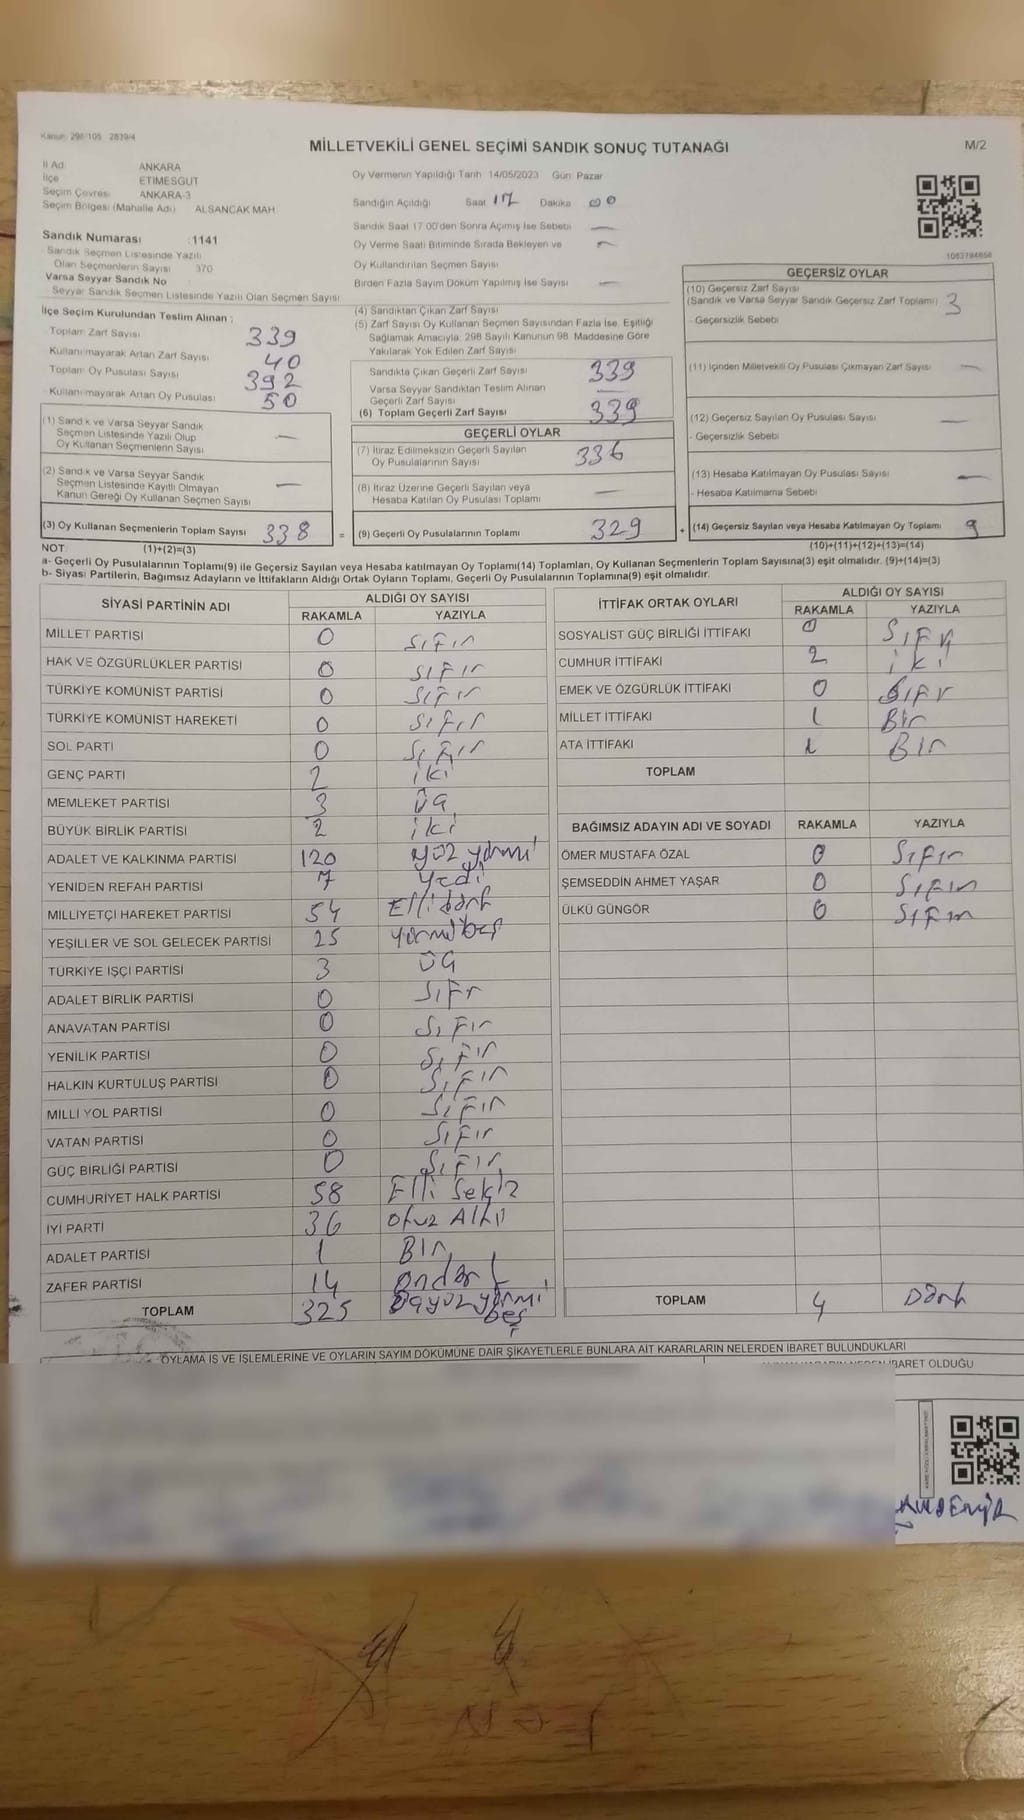 Kanun: 298/105 2839/4
MİLLETVEKİLİ GENEL SEÇİMİ SANDIK SONUÇ TUTANAĞI
M/2
İl Adı ANKARA
İlçe ETİMESGUT
Seçim Çevresi ANKARA-3
Seçim Bölgesi (Mahalle Adı) ALSANCAK MAH
Oy Vermenin Yapıldığı Tarih 14/05/2023 Gün Pazar
Sandığın Açıldığı Saat 17 Dakika 00
Sandık Saat 17:00'den Sonra Açımış İse Sebebi —
Oy Verme Saati Bitiminde Sırada Bekleyen ve —
Oy Kullandırılan Seçmen Sayısı
Birden Fazla Sayım Döküm Yapılmış İse Sayısı —
Sandık Numarası : 1141
- Sandık Seçmen Listesinde Yazılı
Olan Seçmenlerin Sayısı 370
Varsa Seyyar Sandık No
- Seyyar Sandık Seçmen Listesinde Yazılı Olan Seçmen Sayısı
İlçe Seçim Kurulundan Teslim Alınan :
- Toplam Zarf Sayısı 339
- Kullanılmayarak Artan Zarf Sayısı 40
- Toplam Oy Pusulası Sayısı 392
- Kullanılmayarak Artan Oy Pusulası 50
(1) Sandık ve Varsa Seyyar Sandık
Seçmen Listesinde Yazılı Olup
Oy Kullanan Seçmenlerin Sayısı —
(2) Sandık ve Varsa Seyyar Sandık
Seçmen Listesinde Kayıtlı Olmayan
Kanun Gereği Oy Kullanan Seçmen Sayısı —
(3) Oy Kullanan Seçmenlerin Toplam Sayısı 338 =
(1)+(2)=(3)
(4) Sandıktan Çıkan Zarf Sayısı
(5) Zarf Sayısı Oy Kullanan Seçmen Sayısından Fazla İse, Eşitliği
Sağlamak Amacıyla, 298 Sayılı Kanunun 98. Maddesine Göre
Yakılarak Yok Edilen Zarf Sayısı
Sandıkta Çıkan Geçerli Zarf Sayısı 339
Varsa Seyyar Sandıktan Teslim Alınan
Geçerli Zarf Sayısı
(6) Toplam Geçerli Zarf Sayısı 339
GEÇERLİ OYLAR
(7) İtiraz Edilmeksizin Geçerli Sayılan
Oy Pusulalarının Sayısı 336
(8) İtiraz Üzerine Geçerli Sayılan veya
Hesaba Katılan Oy Pusulası Toplamı —
(9) Geçerli Oy Pusulalarının Toplamı 329 +
1063794656
GEÇERSİZ OYLAR
(10) Geçersiz Zarf Sayısı
(Sandık ve Varsa Seyyar Sandık Geçersiz Zarf Toplamı) 3
- Geçersizlik Sebebi
(11) İçinden Milletvekili Oy Pusulası Çıkmayan Zarf Sayısı —
(12) Geçersiz Sayılan Oy Pusulası Sayısı —
- Geçersizlik Sebebi
(13) Hesaba Katılmayan Oy Pusulası Sayısı —
- Hesaba Katılmama Sebebi
(14) Geçersiz Sayılan veya Hesaba Katılmayan Oy Toplamı 9
(10)+(11)+(12)+(13)=(14)
NOT:
a- Geçerli Oy Pusulalarının Toplamı(9) ile Geçersiz Sayılan veya Hesaba katılmayan Oy Toplamı(14) Toplamları, Oy Kullanan Seçmenlerin Toplam Sayısına(3) eşit olmalıdır. (9)+(14)=(3)
b- Siyasi Partilerin, Bağımsız Adayların ve İttifakların Aldığı Ortak Oyların Toplamı, Geçerli Oy Pusulalarının Toplamına(9) eşit olmalıdır.
SİYASİ PARTİNİN ADI ALDIĞI OY SAYISI
RAKAMLA YAZIYLA
MİLLET PARTİSİ 0 Sıfır
HAK VE ÖZGÜRLÜKLER PARTİSİ 0 Sıfır
TÜRKİYE KOMÜNİST PARTİSİ 0 Sıfır
TÜRKİYE KOMÜNİST HAREKETİ 0 Sıfır
SOL PARTİ 0 Sıfır
GENÇ PARTİ 2 iki
MEMLEKET PARTİSİ 3 üç
BÜYÜK BİRLİK PARTİSİ 2 iki
ADALET VE KALKINMA PARTİSİ 120 yüz yirmi
YENİDEN REFAH PARTİSİ 7 yedi
MİLLİYETÇİ HAREKET PARTİSİ 54 Elli dört
YEŞİLLER VE SOL GELECEK PARTİSİ 25 yirmi beş
TÜRKİYE İŞÇİ PARTİSİ 3 üç
ADALET BİRLİK PARTİSİ 0 Sıfır
ANAVATAN PARTİSİ 0 Sıfır
YENİLİK PARTİSİ 0 Sıfır
HALKIN KURTULUŞ PARTİSİ 0 Sıfır
MİLLİ YOL PARTİSİ 0 Sıfır
VATAN PARTİSİ 0 Sıfır
GÜÇ BİRLİĞİ PARTİSİ 0 Sıfır
CUMHURİYET HALK PARTİSİ 58 Elli Sekiz
İYİ PARTİ 36 otuz Altı
ADALET PARTİSİ 1 Bir
ZAFER PARTİSİ 14 ondört
TOPLAM 325 üçyüz yirmi beş
İTTİFAK ORTAK OYLARI ALDIĞI OY SAYISI
RAKAMLA YAZIYLA
SOSYALİST GÜÇ BİRLİĞİ İTTİFAKI 0 Sıfır
CUMHUR İTTİFAKI 2 iki
EMEK VE ÖZGÜRLÜK İTTİFAKI 0 Sıfır
MİLLET İTTİFAKI 1 Bir
ATA İTTİFAKI 1 Bir
TOPLAM
BAĞIMSIZ ADAYIN ADI VE SOYADI RAKAMLA YAZIYLA
ÖMER MUSTAFA ÖZAL 0 Sıfır
ŞEMSEDDİN AHMET YAŞAR 0 Sıfır
ÜLKÜ GÜNGÖR 0 Sıfır
TOPLAM 4 Dört
OYLAMA İŞ VE İŞLEMLERİNE VE OYLARIN SAYIM DÖKÜMÜNE DAİR ŞİKAYETLERLE BUNLARA AİT KARARLARIN NELERDEN İBARET BULUNDUKLARI
İBARET OLDUĞU